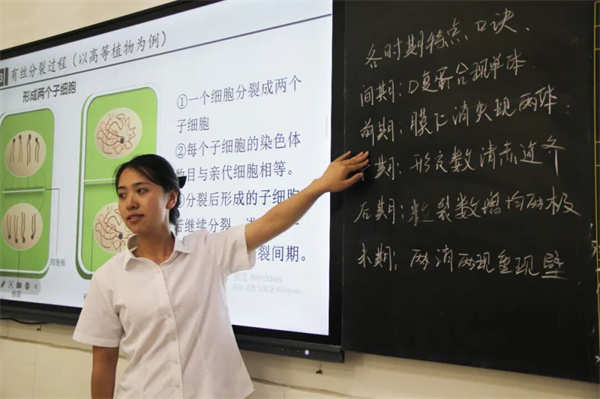 有丝分裂过程（以高等植物为例）
形成两个子细胞
①一个细胞分裂成两个
子细胞
②每个子细胞的染色体
数目与亲代细胞相等。
分裂后形成的子细胞
继续分裂
裂间期。
Windows
Windows。
各时期特点口诀.
间期：D复蛋合现单体
前期：膜仁消失现两体.
期：形定数清赤道齐
后期：粒裂数增均两极
末期：两消两现重现壁